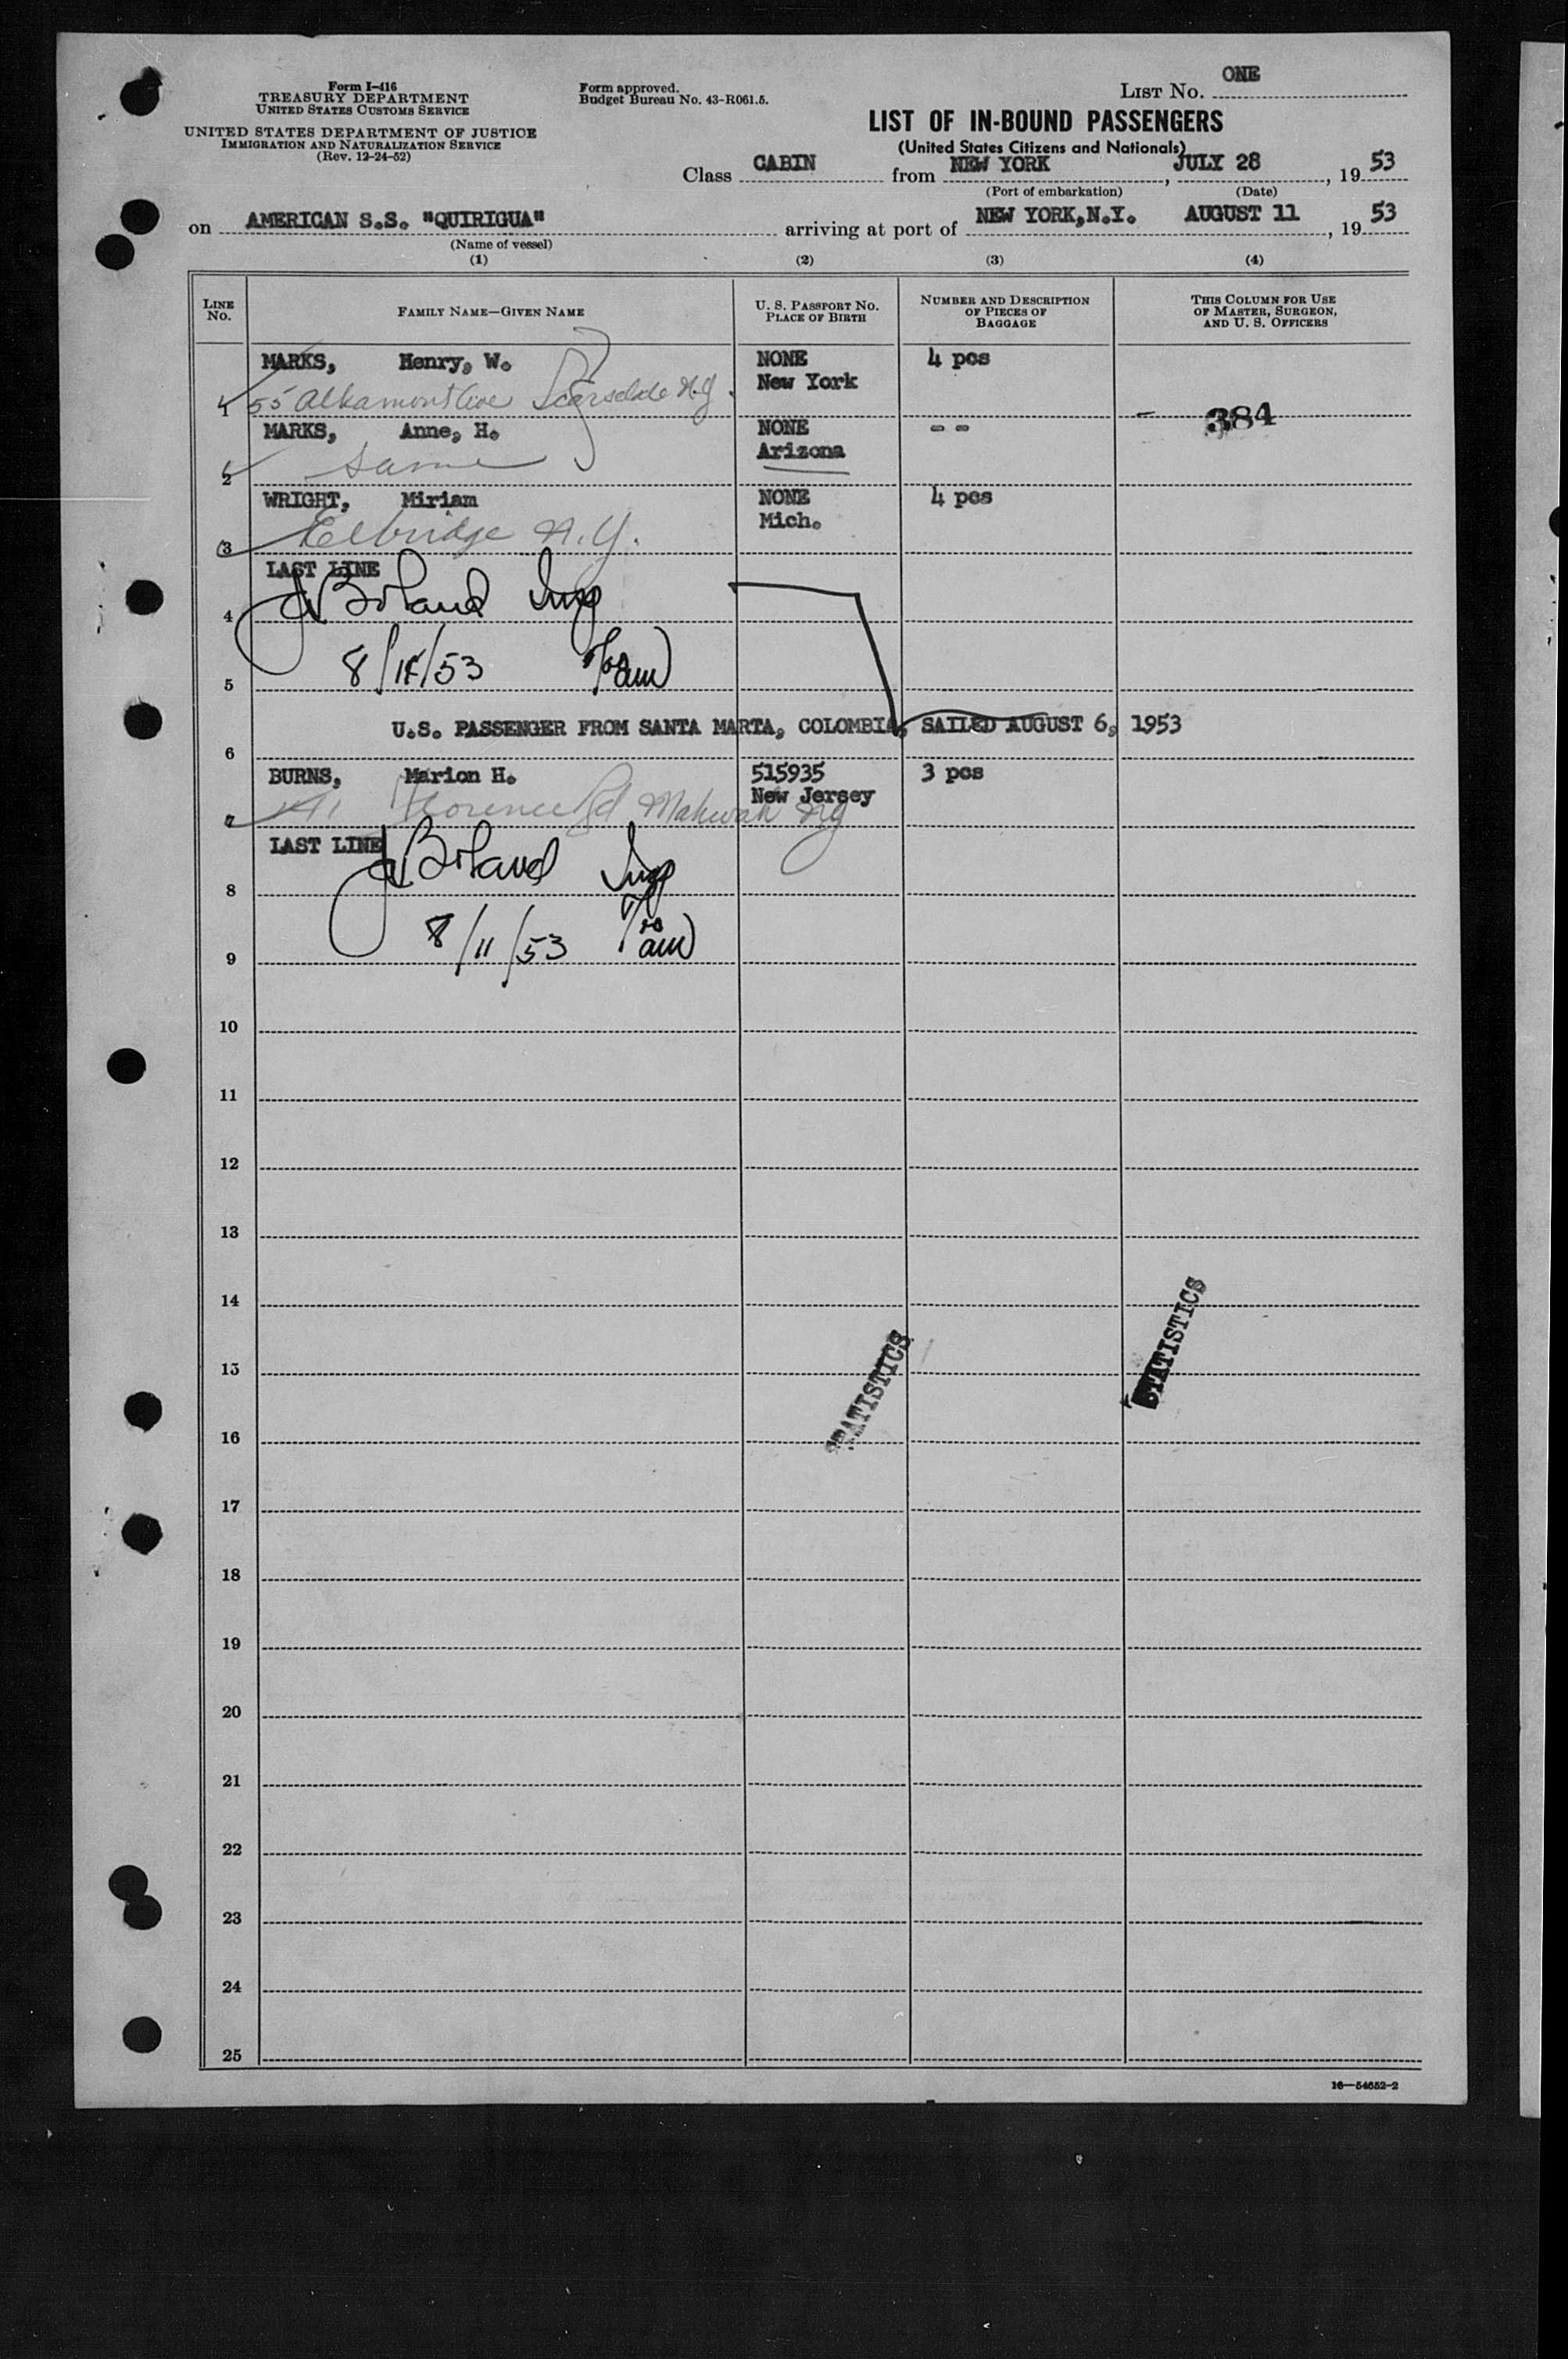 Form I-416
TREASURY DEPARTMENT
UNITED STATES CUSTOMS SERVICE
UNITED STATES DEPARTMENT OF JUSTICE
IMMIGRATION AND NATURALIZATION SERVICE
(Rev. 12-24-52)
Form approved.
Budget Bureau No. 43-R061.5.
LIST NO. ONE
LIST OF IN-BOUND PASSENGERS
(United States Citizens and Nationals)
Class CABIN from NEW YORK, JULY 28, 1953
(Port of embarkation) (Date)
on AMERICAN S.S. "QUIRIGUA" arriving at port of NEW YORK, N.Y. AUGUST 11, 1953
(Name of vessel)
(1) (2) (3) (4)
LINE NO. FAMILY NAME—GIVEN NAME U. S. PASSPORT NO. PLACE OF BIRTH NUMBER AND DESCRIPTION OF PIECES OF BAGGAGE THIS COLUMN FOR USE OF MASTER, SURGEON, AND U. S. OFFICERS
MARKS, Henry, W. NONE 4 pcs
New York
1 55 Scarsdale N.Y.
384
MARKS, Anne, H. NONE - -
Arizona
2 same
WRIGHT, Miriam NONE 4 pcs
Mich.
3 Elbridge N.Y.
LAST LINE
4 Boland Insp
5 8/11/53 am
U.S. PASSENGER FROM SANTA MARTA, COLOMBIA, SAILED AUGUST 6, 1953
6
BURNS, Marion H. 515935 3 pcs
New Jersey
7 Florence Rd Mahwah NJ
LAST LINE
8 Boland Insp
9 8/11/53 am
10
11
12
13
14
STATISTICS
15
STATISTICS
16
17
18
19
20
21
22
23
24
25
16—54652-2